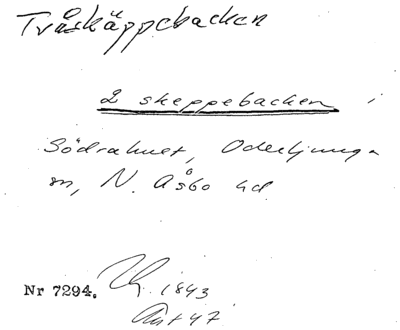 Tvåskäppebacken
2 skeppebacken i
Södrahult, Oderljunga
sn, N. Åsbo hd
Nr 7294. 1843
Ant 47.